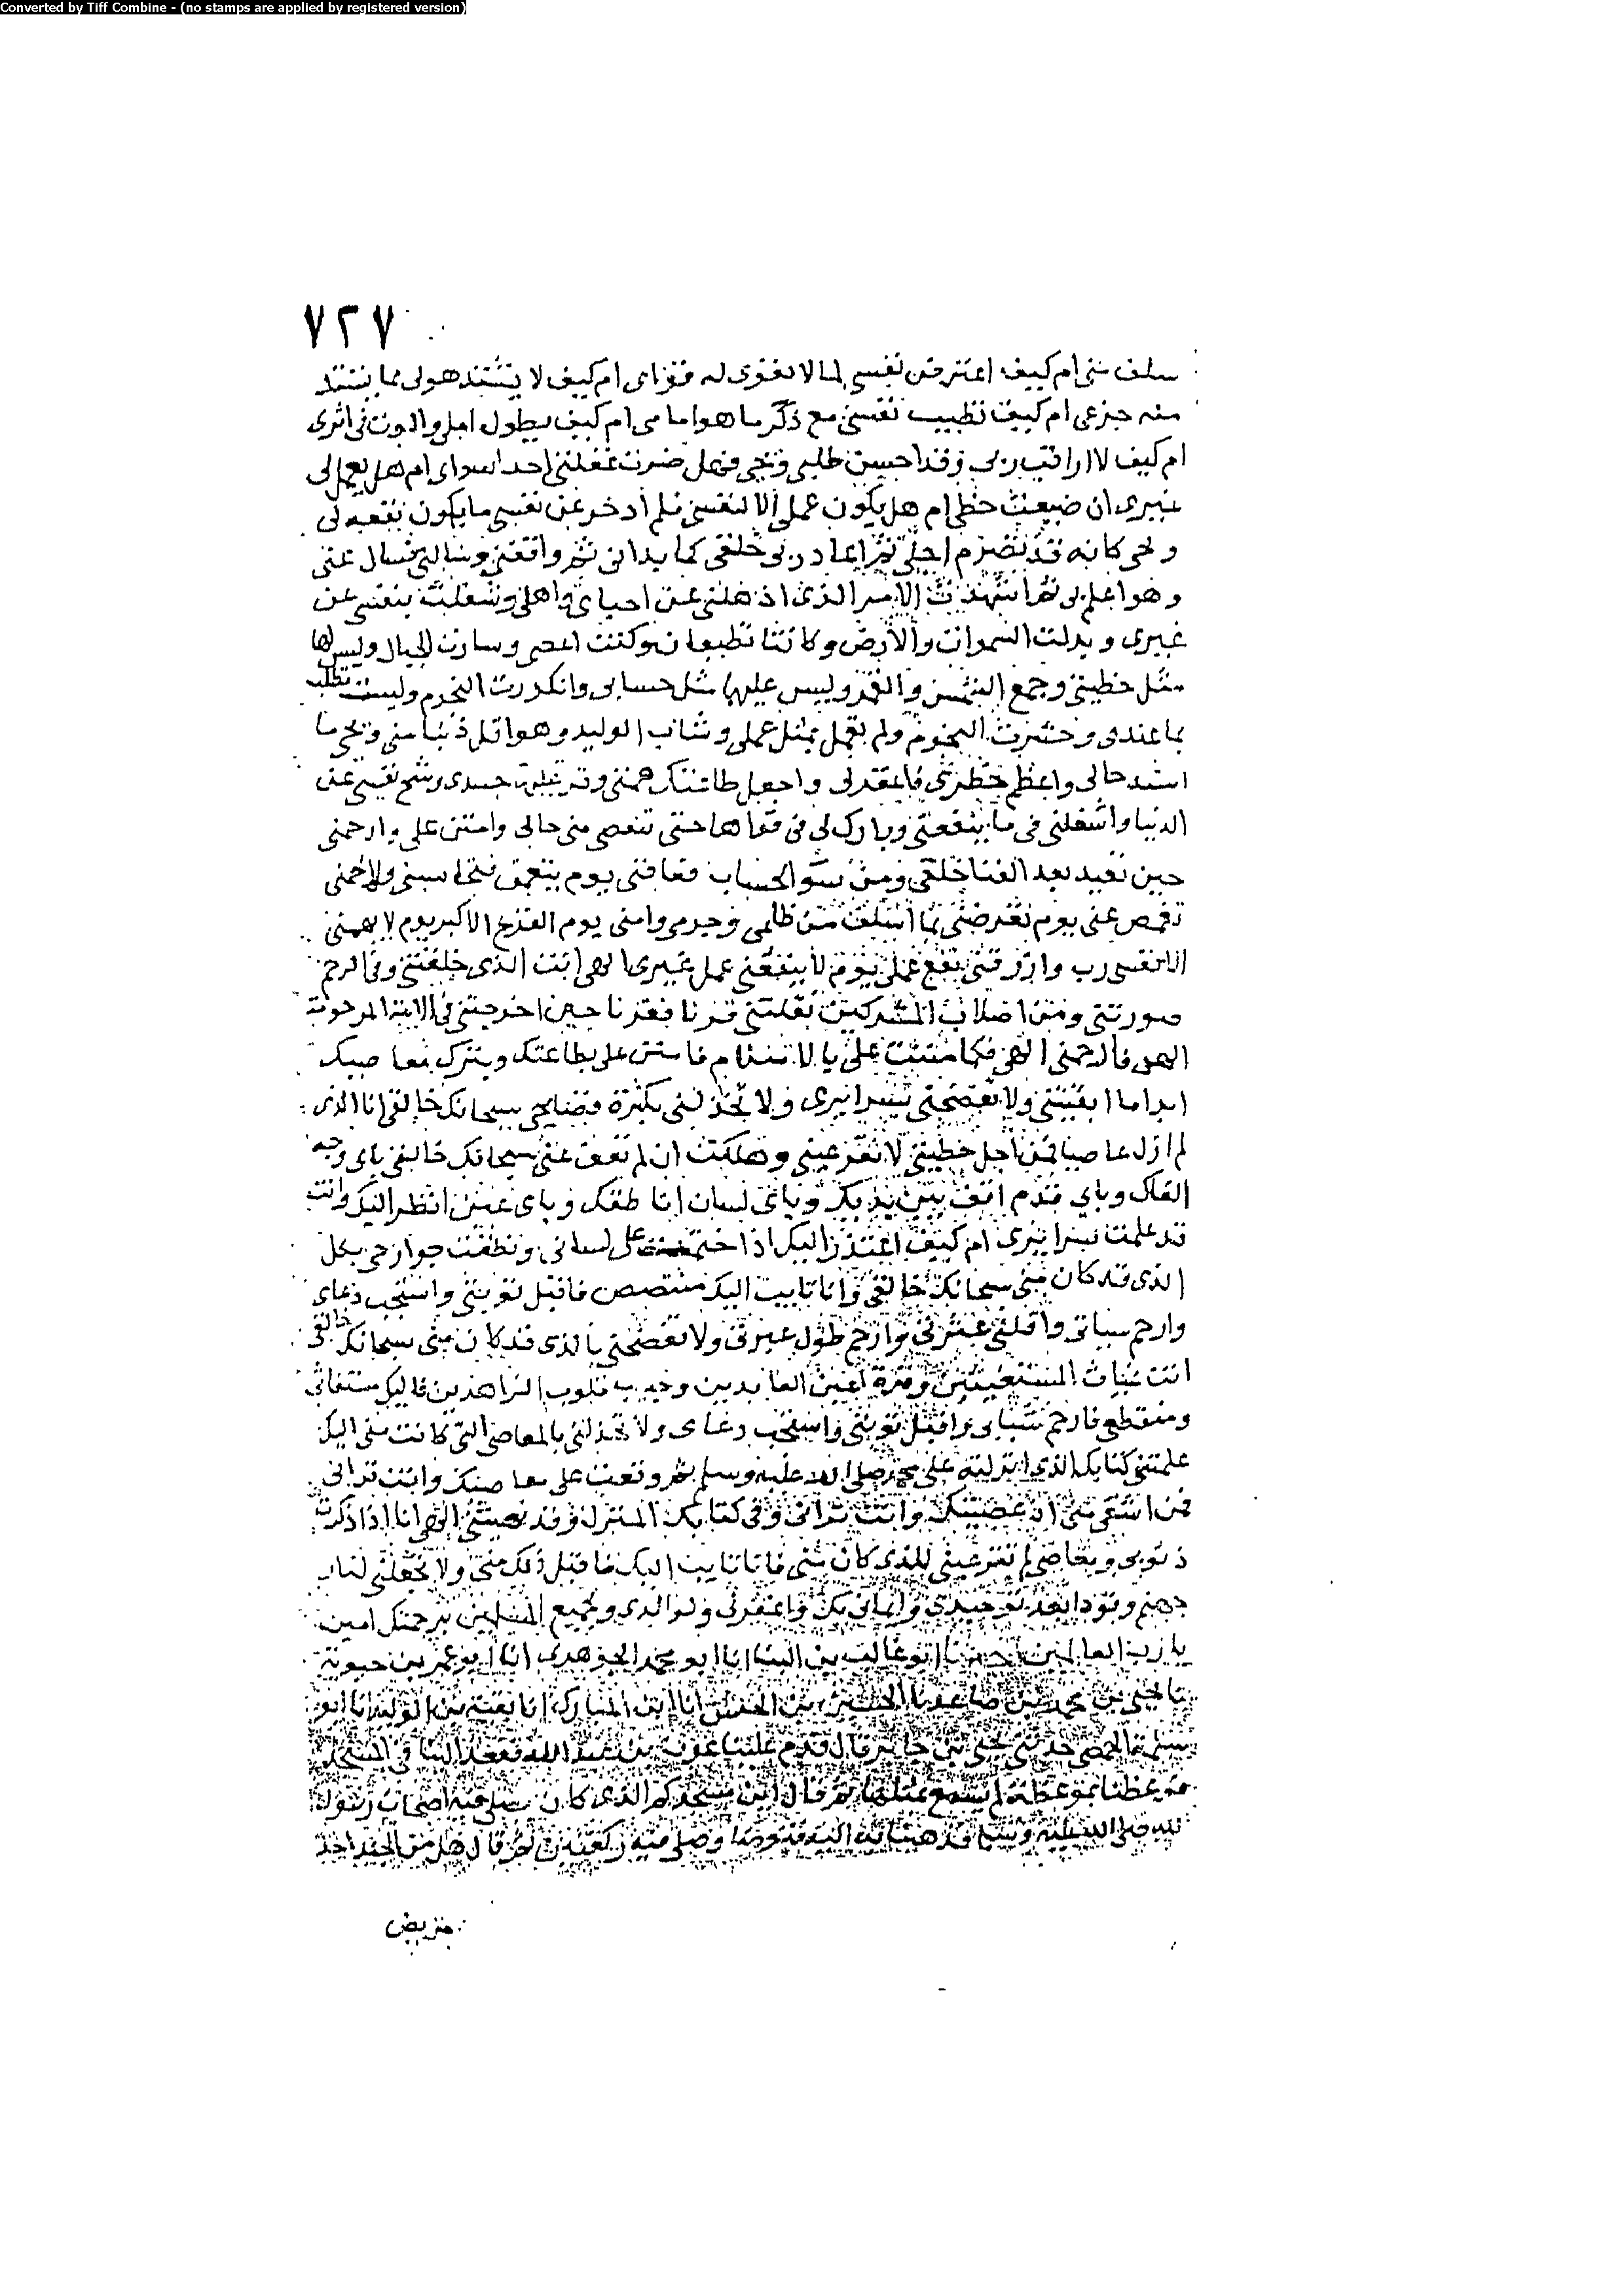 Converted by Tiff Combine - (no stamps are applied by registered version)
٧٢٧
سلف مني ام كيف اعترض نفسي لما لا يقوى له هواى ام كيف لا يشتد هولى مما يشتد
منه جزعى ام كيف تطيب نفسي مع ذكر ما هو امامى ام كيف يطول املى والموت فى اثرى
ام كيف لا اراقب ربى وقد احسن طلبى ويحى فهل ضرت غفلتى احدا سواى ام هل يعمل لى
غيرى ان ضيعت حظى ام هل يكون عملى الا لنفسى فلم ادخر عن نفسى ما يكون نفعه لى
ويحى كانه قد تصرم اجلى ثم اعاد ربى خلقى كما بدانى ثم واقفنى وسالنى فسال عنى
وهو اعلم بى ثم اشهدت الامر الذى اذهلنى عن احبائى واهلى وشغلت بنفسى عن
غيرى وبدلت السموات والارض وكانتا تطيعان وكنت اعصى وسارت الجبال وليس لها
مثل خطيتى وجمع الشمس والقمر وليس عليهما مثل حسابى وانكدرت النجوم وليست تطلب
بما عندى وحشرت الوحوش ولم تعمل بمثل عملى وشاب الوليد وهو اقل ذنبا منى ويحى ما
اشد حالى واعظم خطرى فاغفر لى واجعل طاعتك همتى وقو عليها جسدى وسخ نفسى عن
الدنيا واشغلنى فى ما ينفعنى وبارك لى فى قواها حتى تنقضى منى حالى وامنن على وارحمنى
حين تعيد بعد الفنا خلقى ومن سوّ الحساب فعافنى يوم تبعثنى فتحاسبنى ولا
تعرض عنى يوم تعرضنى بما اسلفت من ظلمى وجرمى وامنى يوم الفزع الاكبر يوم لا يهمنى
الا نفسى رب وارزقنى نفع عملى يوم لا ينفعنى عمل غيرى الهى انت الذى خلقتنى وفى الرحم
صورتنى ومن اصلاب المشركين نقلتنى قرنا فقرنا حين اخرجتنى فى الامة المرحومة
الهى فارحمنى الهى فكما مننت على بالاسلام فامنن على بطاعتك وبترك معاصيك
ابدا ما ابقيتنى ولا تفضحنى بسرايرى ولا تخذلنى بكثرة فضايحى سبحانك خالقى انا الذى
لم ازل عاصيا فمن اجل خطيتى لا تقر عينى وهلكت ان لم تعف عنى سبحانك خالقى باى وجه
القاك وباى قدم اقف بين يديك وباى لسان اناطقك وباى عين انظر اليك وانت
قد علمت سرايرى ام كيف اعتذر اليك اذا ختمت على لسانى ونطقت جوارحى بكل
الذى قد كان منى سبحانك خالقى وانا تايب اليك متبصبص فاقبل توبتى واستجب دعاى
وارحم شبابى واقلنى عثرتى وارحم طول عبرتى ولا تفضحنى بالذى قد كان منى سبحانك خالقى
انت غياث المستغيثين وقرة اعين العابدين وحبيب قلوب الزاهدين فاليك مستغاثى
ومنقطعى فارحم شبابى واقبل توبتى واستجب دعاى ولا تخذلنى بالمعاصى التى كانت منى اليك
علمتنى كتابك الذى انزلته على محمد صلى الله عليه وسلم ثم وقعت على معاصيك وانت ترانى
فمن اشقى منى ان عصيتك وانت ترانى وفى كتابك المنزل وقد نهيتنى الهى انا اذا ذكرت
ذنوبى ومعاصى لم تقر عينى للذى كان منى فانا تايب اليك فاقبل ذلك منى ولا تجعلنى لنار
جهنم وقودا بعد توحيدى وايمانى بك واغفر لى ولوالدى ولجميع المسلمين برحمتك امين
يا رب العالمين حدثنا ابو غالب بن البنا انا ابو محمد الجوهرى انا ابو عمر بن حيوية
نا يحيى بن محمد بن صاعد نا الحسين بن الحسن انا ابن المبارك انا بقية بن الوليد انا ابو
سلمة الحمصى حدثنى يحيى بن جابر قال قدم علينا عون بن عبد الله فقعد الينا فى المسجد
فوعظنا بموعظة لم نسمع بمثلها ثم قال اين مسجدكم الذى كان يصلى فيه اصحاب رسول
الله صلى الله عليه وسلم فذهبنا به اليه فتوضا وصلى فيه ركعتين ثم قال هل من احد
مريض